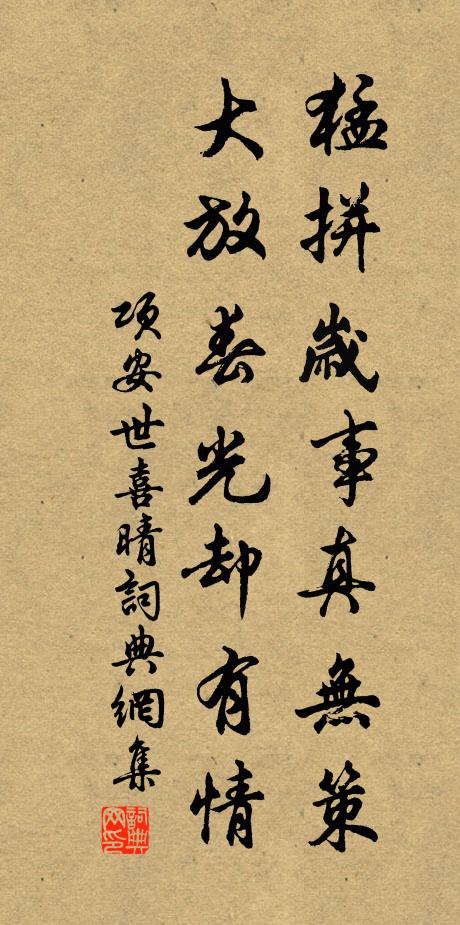 猛拼歲事真無策
大放春光却有情
項安世喜晴詞典網集
詞典网印